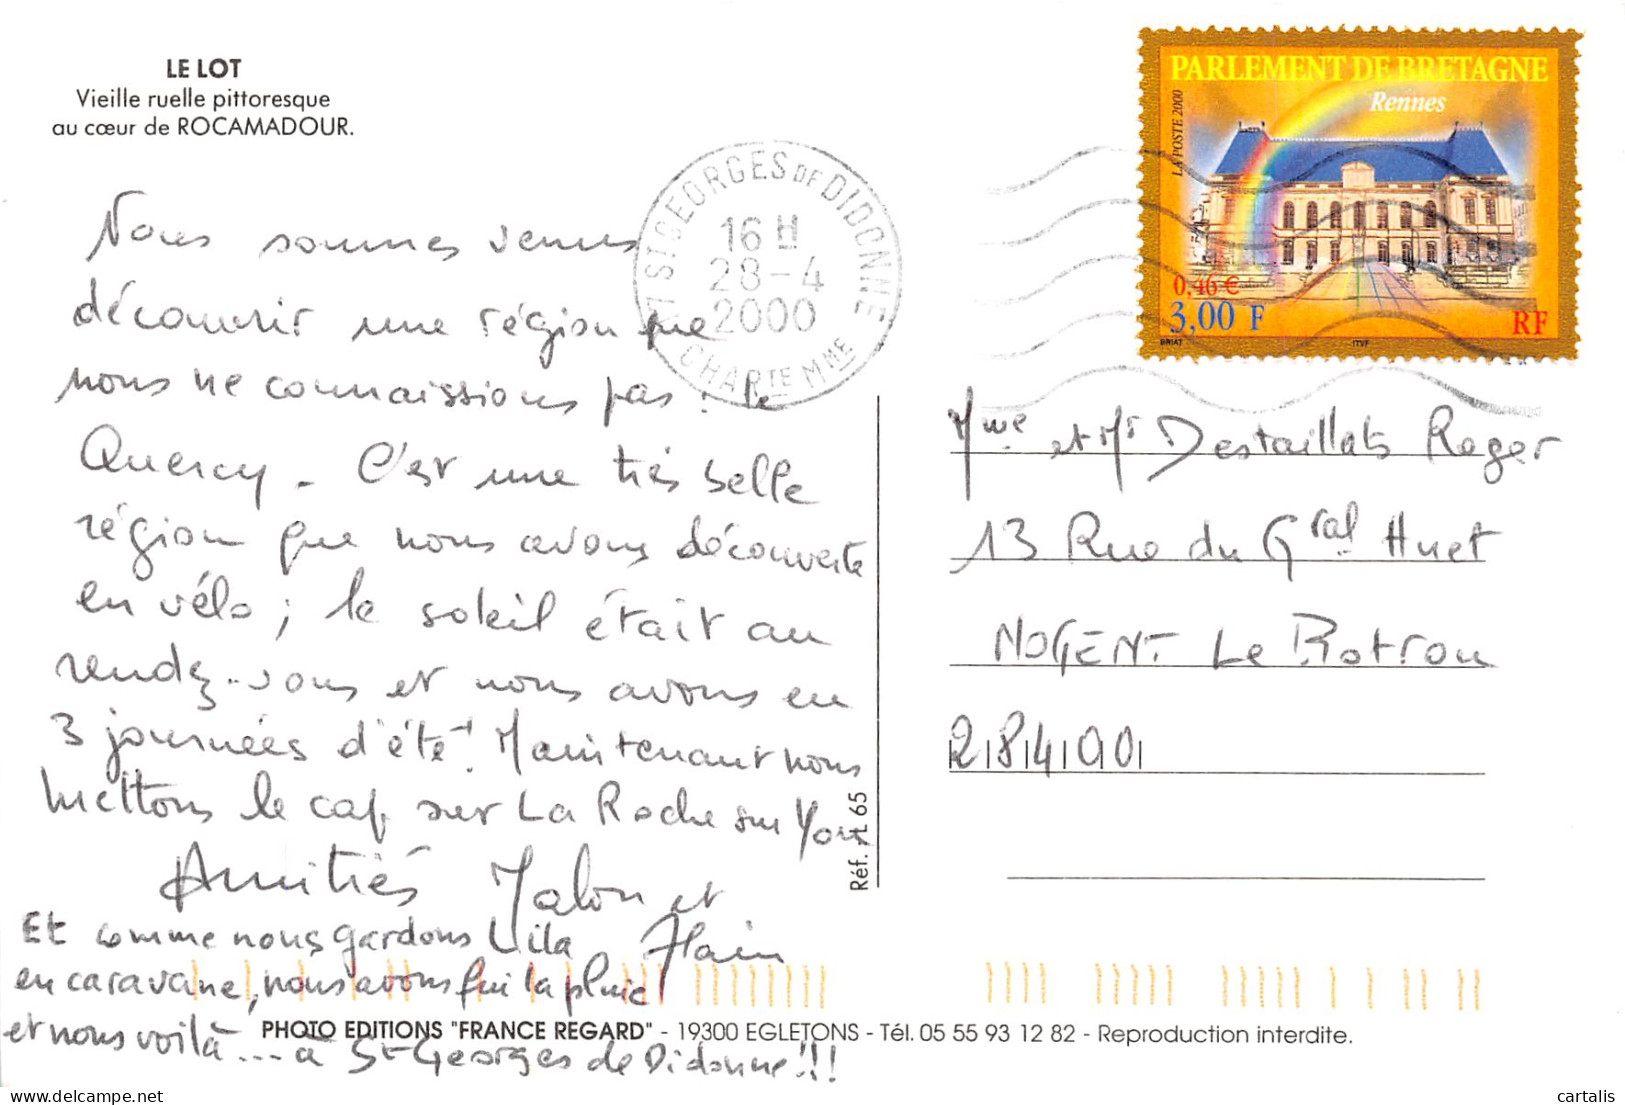 LE LOT
Vieille ruelle pittoresque
au cœur de ROCAMADOUR.
Nous sommes venus
découvrir une région que
nous ne connaissions pas : le
Quercy - C'est une très belle
région que nous avons découverte
en vélo ; le soleil était au
rendez-vous et nous avons eu
3 journées d'été ! Maintenant nous
mettons le cap sur La Roche sur Yon
Amitiés et
Alain
Et comme nous gardons
en caravane, nous avons fui la pluie
et nous voilà ... à St Georges de Didonne !!!
ST GEORGES DE DIDONNE
16 H
28-4
2000
CHARTE MME
PARLEMENT DE BRETAGNE
Rennes
LA POSTE 2000
0,46 €
3,00 F
RF
BRIAT
ITVF
Mme et Mr Destaillats Roger
13 Rue du Gral Huet
NOGENT Le Rotrou
28400
Réf. AL 65
PHOTO EDITIONS "FRANCE REGARD" - 19300 EGLETONS - Tél. 05 55 93 12 82 - Reproduction interdite.
cartalis